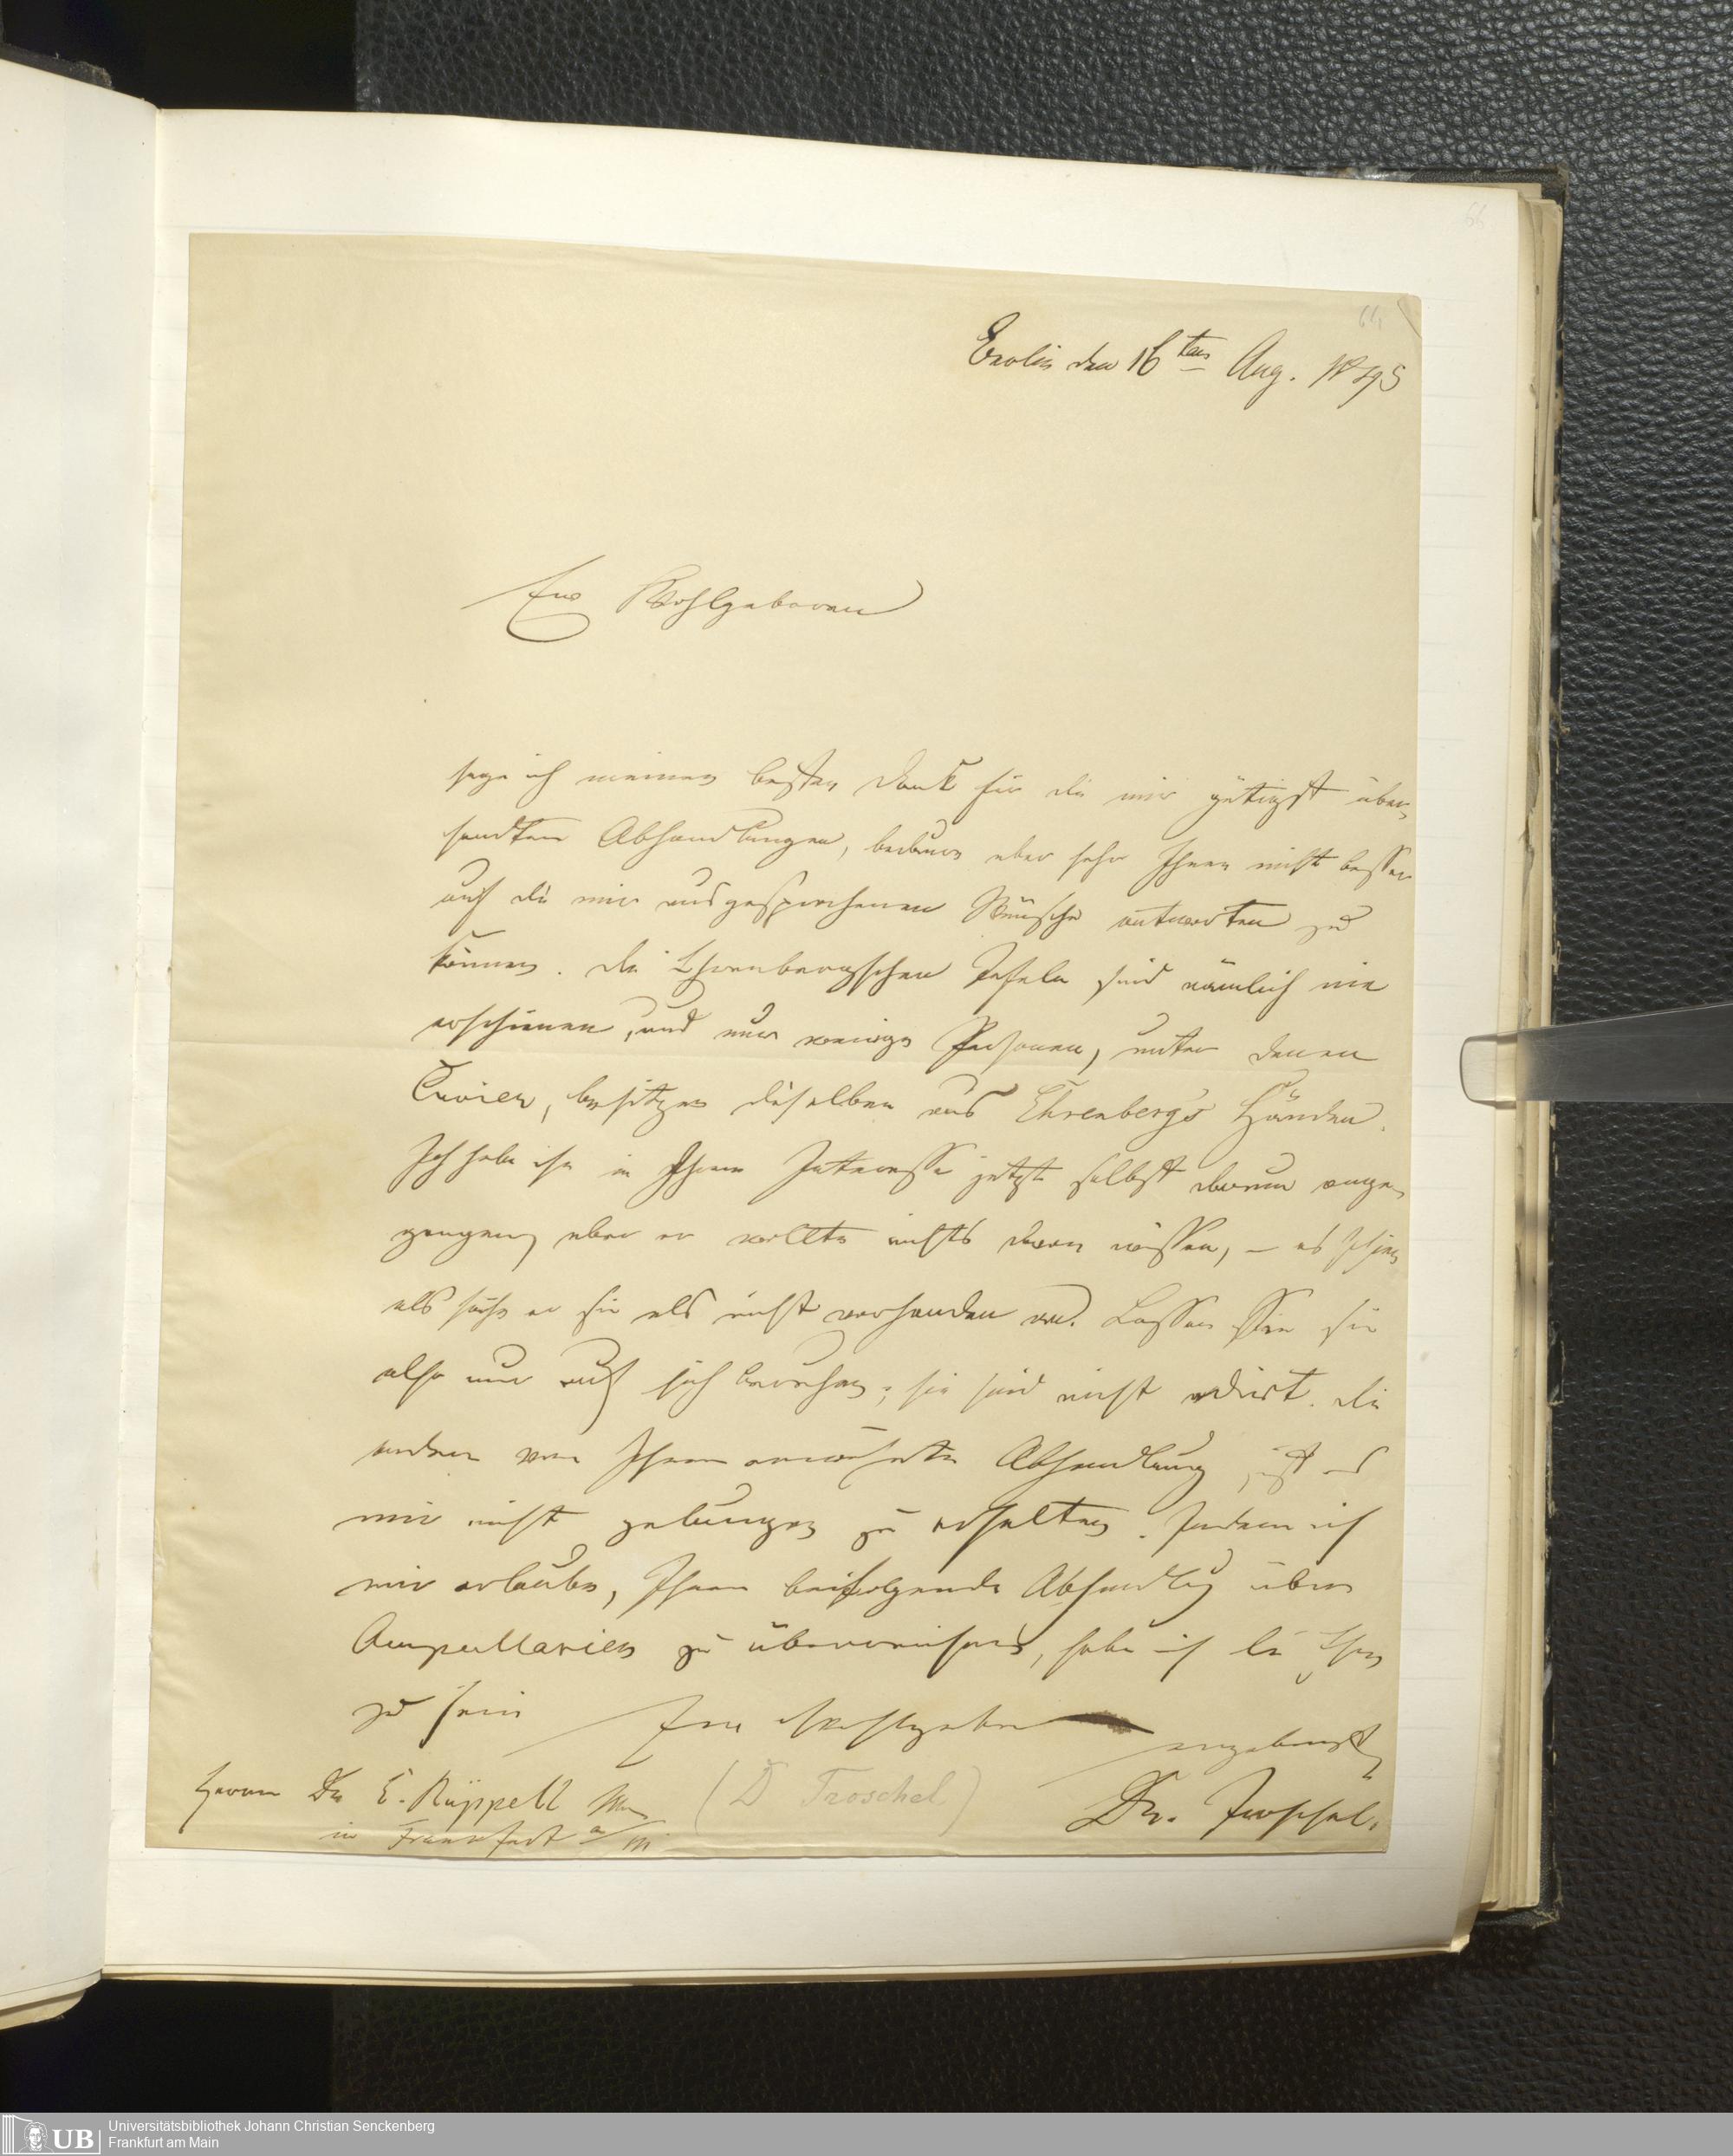 64
Berlin den 16ten Aug. 1845
Ew Wohlgeboren
sage ich meinen besten Dank für die mir gütigst über-
sandten Abhandlungen, bedaure aber sehr Ihnen nicht besser
auf die mir ausgesprochenen Wünsche antworten zu
können. Die Ehrenbergschen Tafeln sind nämlich nie
erschienen, und nur wenige Personen, unter denen
Cuvier, besitzen dieselben aus Ehrenberg's Händen.
Ich habe ihn in Ihrem Interesse jetzt selbst darum ange-
gangen, aber er wollte nichts davon wissen, – es schien
als sähe er sie als nicht vorhanden an. Lassen Sie sie
also nur auf sich beruhen; sie sind nicht edirt. Die
andere von Ihnen erwähnte Abhandlung ist es
mir nicht gelungen zu erhalten. Indem ich
mir erlaube, Ihnen beifolgende Abhandlg über
Ampullarien zu überreichen, habe ich die Ehre
zu sein Ew Wohlgeboren
ergebenster
Herrn Dr E. Rüppell (D Troschel) Dr. Troschel.
in Frankfurt a/M
UB Universitätsbibliothek Johann Christian Senckenberg
Frankfurt am Main